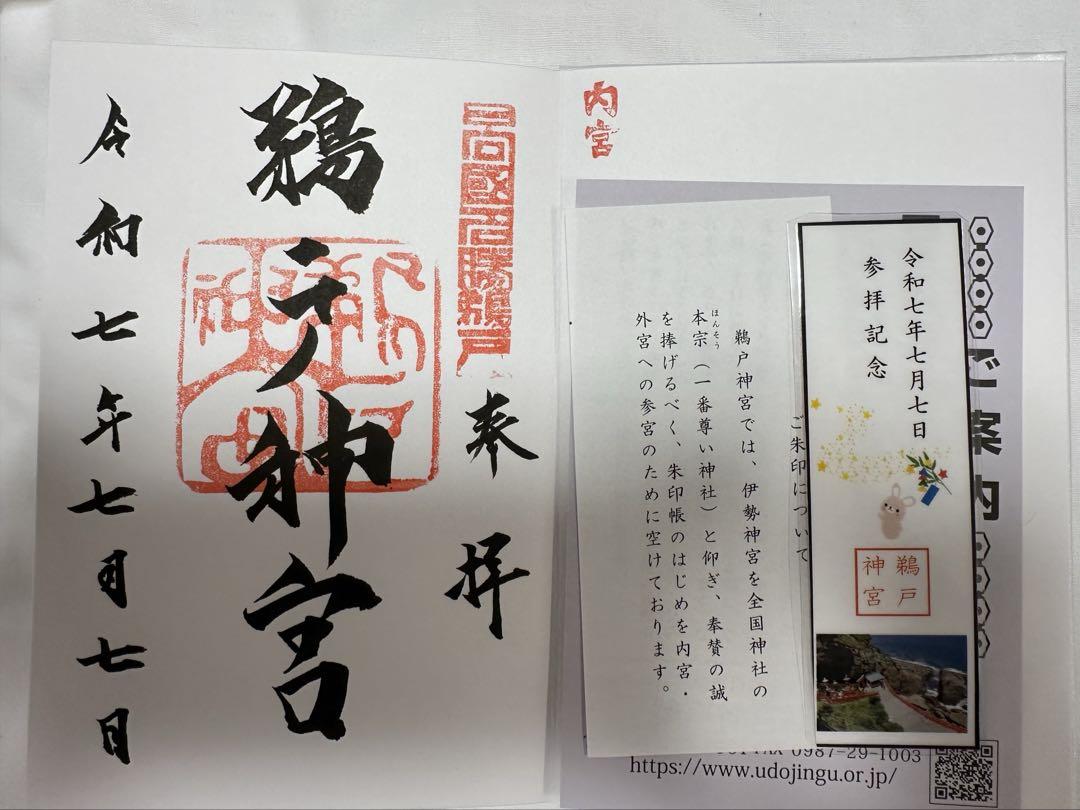 日向國名勝鵜戸
奉拝
鵜戸神宮
鵜戸神宮
令和七年七月七日
内宮
ご案内
令和七年七月七日
参拝記念
鵜戸
神宮
ご朱印について
鵜戸神宮では、伊勢神宮を全国神社の
本宗(一番尊い神社)と仰ぎ、奉賛の誠
ほんそう
を捧げるべく、朱印帳のはじめを内宮・
外宮への参宮のために空けております。
FAX 0987-29-1003
https://www.udojingu.or.jp/